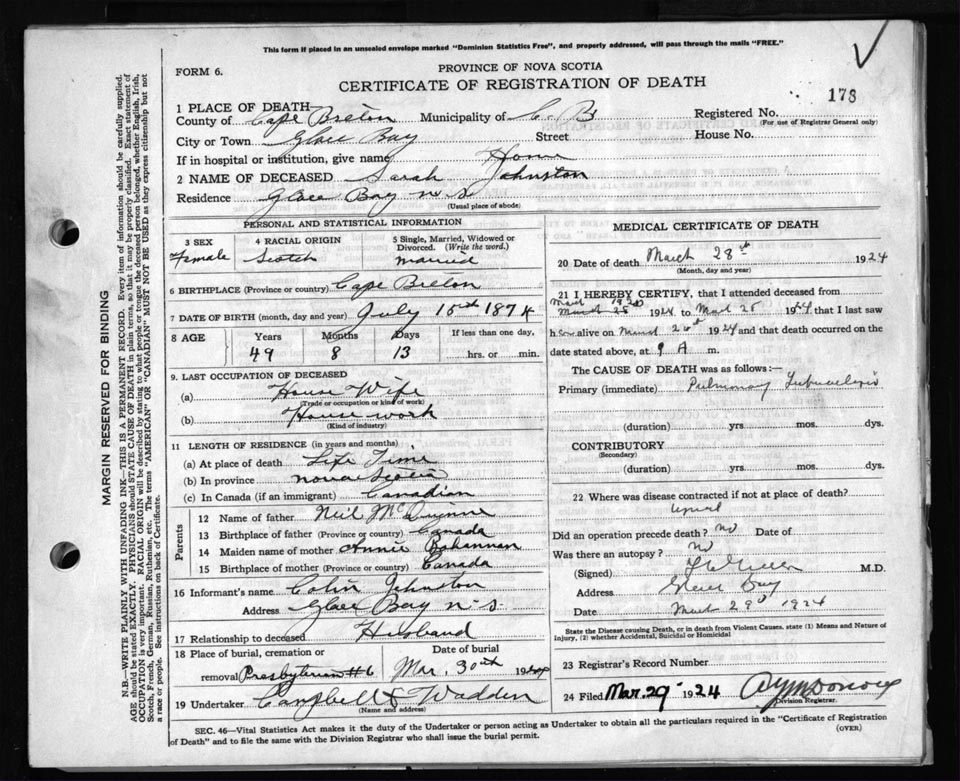 This form if placed in an unsealed envelope marked "Dominion Statistics Free", and properly addressed, will pass through the mails "FREE."
FORM 6.
PROVINCE OF NOVA SCOTIA
CERTIFICATE OF REGISTRATION OF DEATH
173
1 PLACE OF DEATH
County of Cape Breton Municipality of C. B Registered No.
(For use of Registrar General only)
City or Town Glace Bay Street House No.
If in hospital or institution, give name Home
2 NAME OF DECEASED Sarah Johnston
Residence Glace Bay N S
(Usual place of abode)
PERSONAL AND STATISTICAL INFORMATION
3 SEX Female
4 RACIAL ORIGIN Scotch
5 Single, Married, Widowed or Divorced. (Write the word.) married
6 BIRTHPLACE (Province or country) Cape Breton
7 DATE OF BIRTH (month, day and year) July 15th 1874
8 AGE Years Months Days If less than one day,
49 8 13 hrs. or min.
9. LAST OCCUPATION OF DECEASED
(a) House Wife
(Trade or occupation or kind of work)
(b) House work
(Kind of industry)
11 LENGTH OF RESIDENCE (in years and months)
(a) At place of death Life Time
(b) In province nova scotia
(c) In Canada (if an immigrant) Canadian
Parents
12 Name of father Neil Mc
13 Birthplace of father (Province or country) Canada
14 Maiden name of mother Annie Bohannan
15 Birthplace of mother (Province or country) Canada
16 Informant's name Colin Johnston
Address Glace Bay N. S.
17 Relationship to deceased Husband
18 Place of burial, cremation or removal Presbyterian #6
Date of burial Mar. 30th 1924
19 Undertaker Campbell & Wadden
(Name and address)
MEDICAL CERTIFICATE OF DEATH
20 Date of death March 28th 1924
(Month, day and year)
21 I HEREBY CERTIFY, that I attended deceased from
1924 to 1924 that I last saw
h alive on 1924 and that death occurred on
date stated above, at 9 A m.
The CAUSE OF DEATH was as follows:—
Primary (immediate) Pulmonary Tuberculosis
(duration) yrs. mos. dys.
CONTRIBUTORY
(Secondary)
(duration) yrs. mos. dys.
22 Where was disease contracted if not at place of death?
Did an operation precede death? No Date of
Was there an autopsy? No
(Signed) M.D.
Address Glace Bay
Date March 29 1924
State the Disease causing Death, or in death from Violent Causes, state (1) Means and Nature of Injury, (2) whether Accidental, Suicidal or Homicidal
23 Registrar's Record Number
24 Filed Mar. 29 1924
Division Registrar.
SEC. 46—Vital Statistics Act makes it the duty of the Undertaker or person acting as Undertaker to obtain all the particulars required in the "Certificate of Registration
of Death" and to file the same with the Division Registrar who shall issue the burial permit.
(OVER)
MARGIN RESERVED FOR BINDING
N.B.—WRITE PLAINLY WITH UNFADING INK—THIS IS A PERMANENT RECORD. Every item of information should be carefully supplied.
AGE should be stated EXACTLY. PHYSICIANS should STATE CAUSE OF DEATH in plain terms, so that it may be properly classified. Exact statement of
OCCUPATION is very important. RACIAL ORIGIN will be described by stating to what people or tongue the deceased person belonged, whether English, Irish,
Scotch, French, German, Russian, Ruthenian, etc. The terms "AMERICAN" or "CANADIAN" MUST NOT BE USED as they express citizenship but not
a race or people. See instructions on back of Certificate.